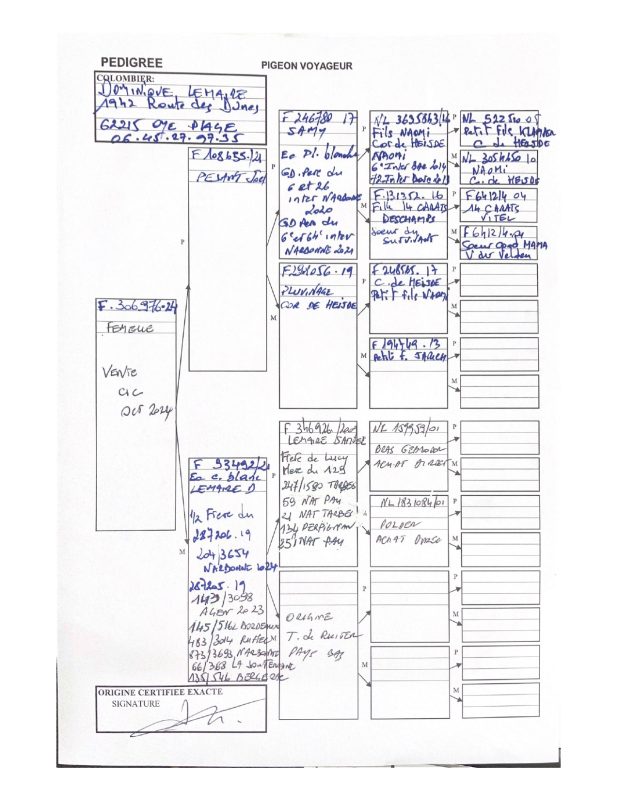 PEDIGREE
PIGEON VOYAGEUR
COLOMBIER:
DOMINIQUE LEMAIRE
1942 Route des Dunes
62215 OYE PLAGE
06.45.27.97.35
F.306.976-24
FEMELLE
VENTE
CIC
OCT 2024
P
M
PESANT Joël
F 93492/2
Ec c. blanc
LEMAIRE D
1/2 Frere du
287206.19
204/3654
NARBONNE 2024
287205.19
1473/3098
AGEN 2023
145/5162 BORDEAUX
483/3014 RUFFEC
873/3693 NARBONNE
66/368 LA SOUTERRAINE
135/546 BERGERAC
P
M
P
M
F 246780 17
SAMY
Ec Pl. blanche
GD. Pere du
6 et 26
inter NARBONNE
2020
GD Pere du
6e et 64e inter
NARBONNE 2021
PLUVINAGE
COR DE HEIJDE
F 346926
LEMAIRE
Frere de Lucy
Mere du 129
247/1580 TARBES
59 NAT PAU
21 NAT TARBES
134 PERPIGNAN
35 NAT PAU
ORIGINE
T. de RUITER
PAYS BAS
P
M
P
M
P
P
M
Fils NAOMI
Cor de HEIJDE
NAOMI
6e Inter Dax 2014
F.131352.16
Fille 14 CARATS
DESCHAMPS
Soeur du
SURVIVANT
F 248505.17
C. de HEIJDE
Petit fils NAOMI
F 194749.13
NL 159959/01
ACHAT DIRECT
NL 1831084/01
POLDER
ACHAT
P
M
P
M
P
M
P
M
P
M
P
M
P
M
P
M
NL 512510.05
Petit Fils
C. de HEIJDE
NL 3054650 10
NAOMI
C. de HEIJDE
F 6412/4 04
14 CARATS
VITEL
Soeur
MAMA
V der Velden
ORIGINE CERTIFIEE EXACTE
SIGNATURE